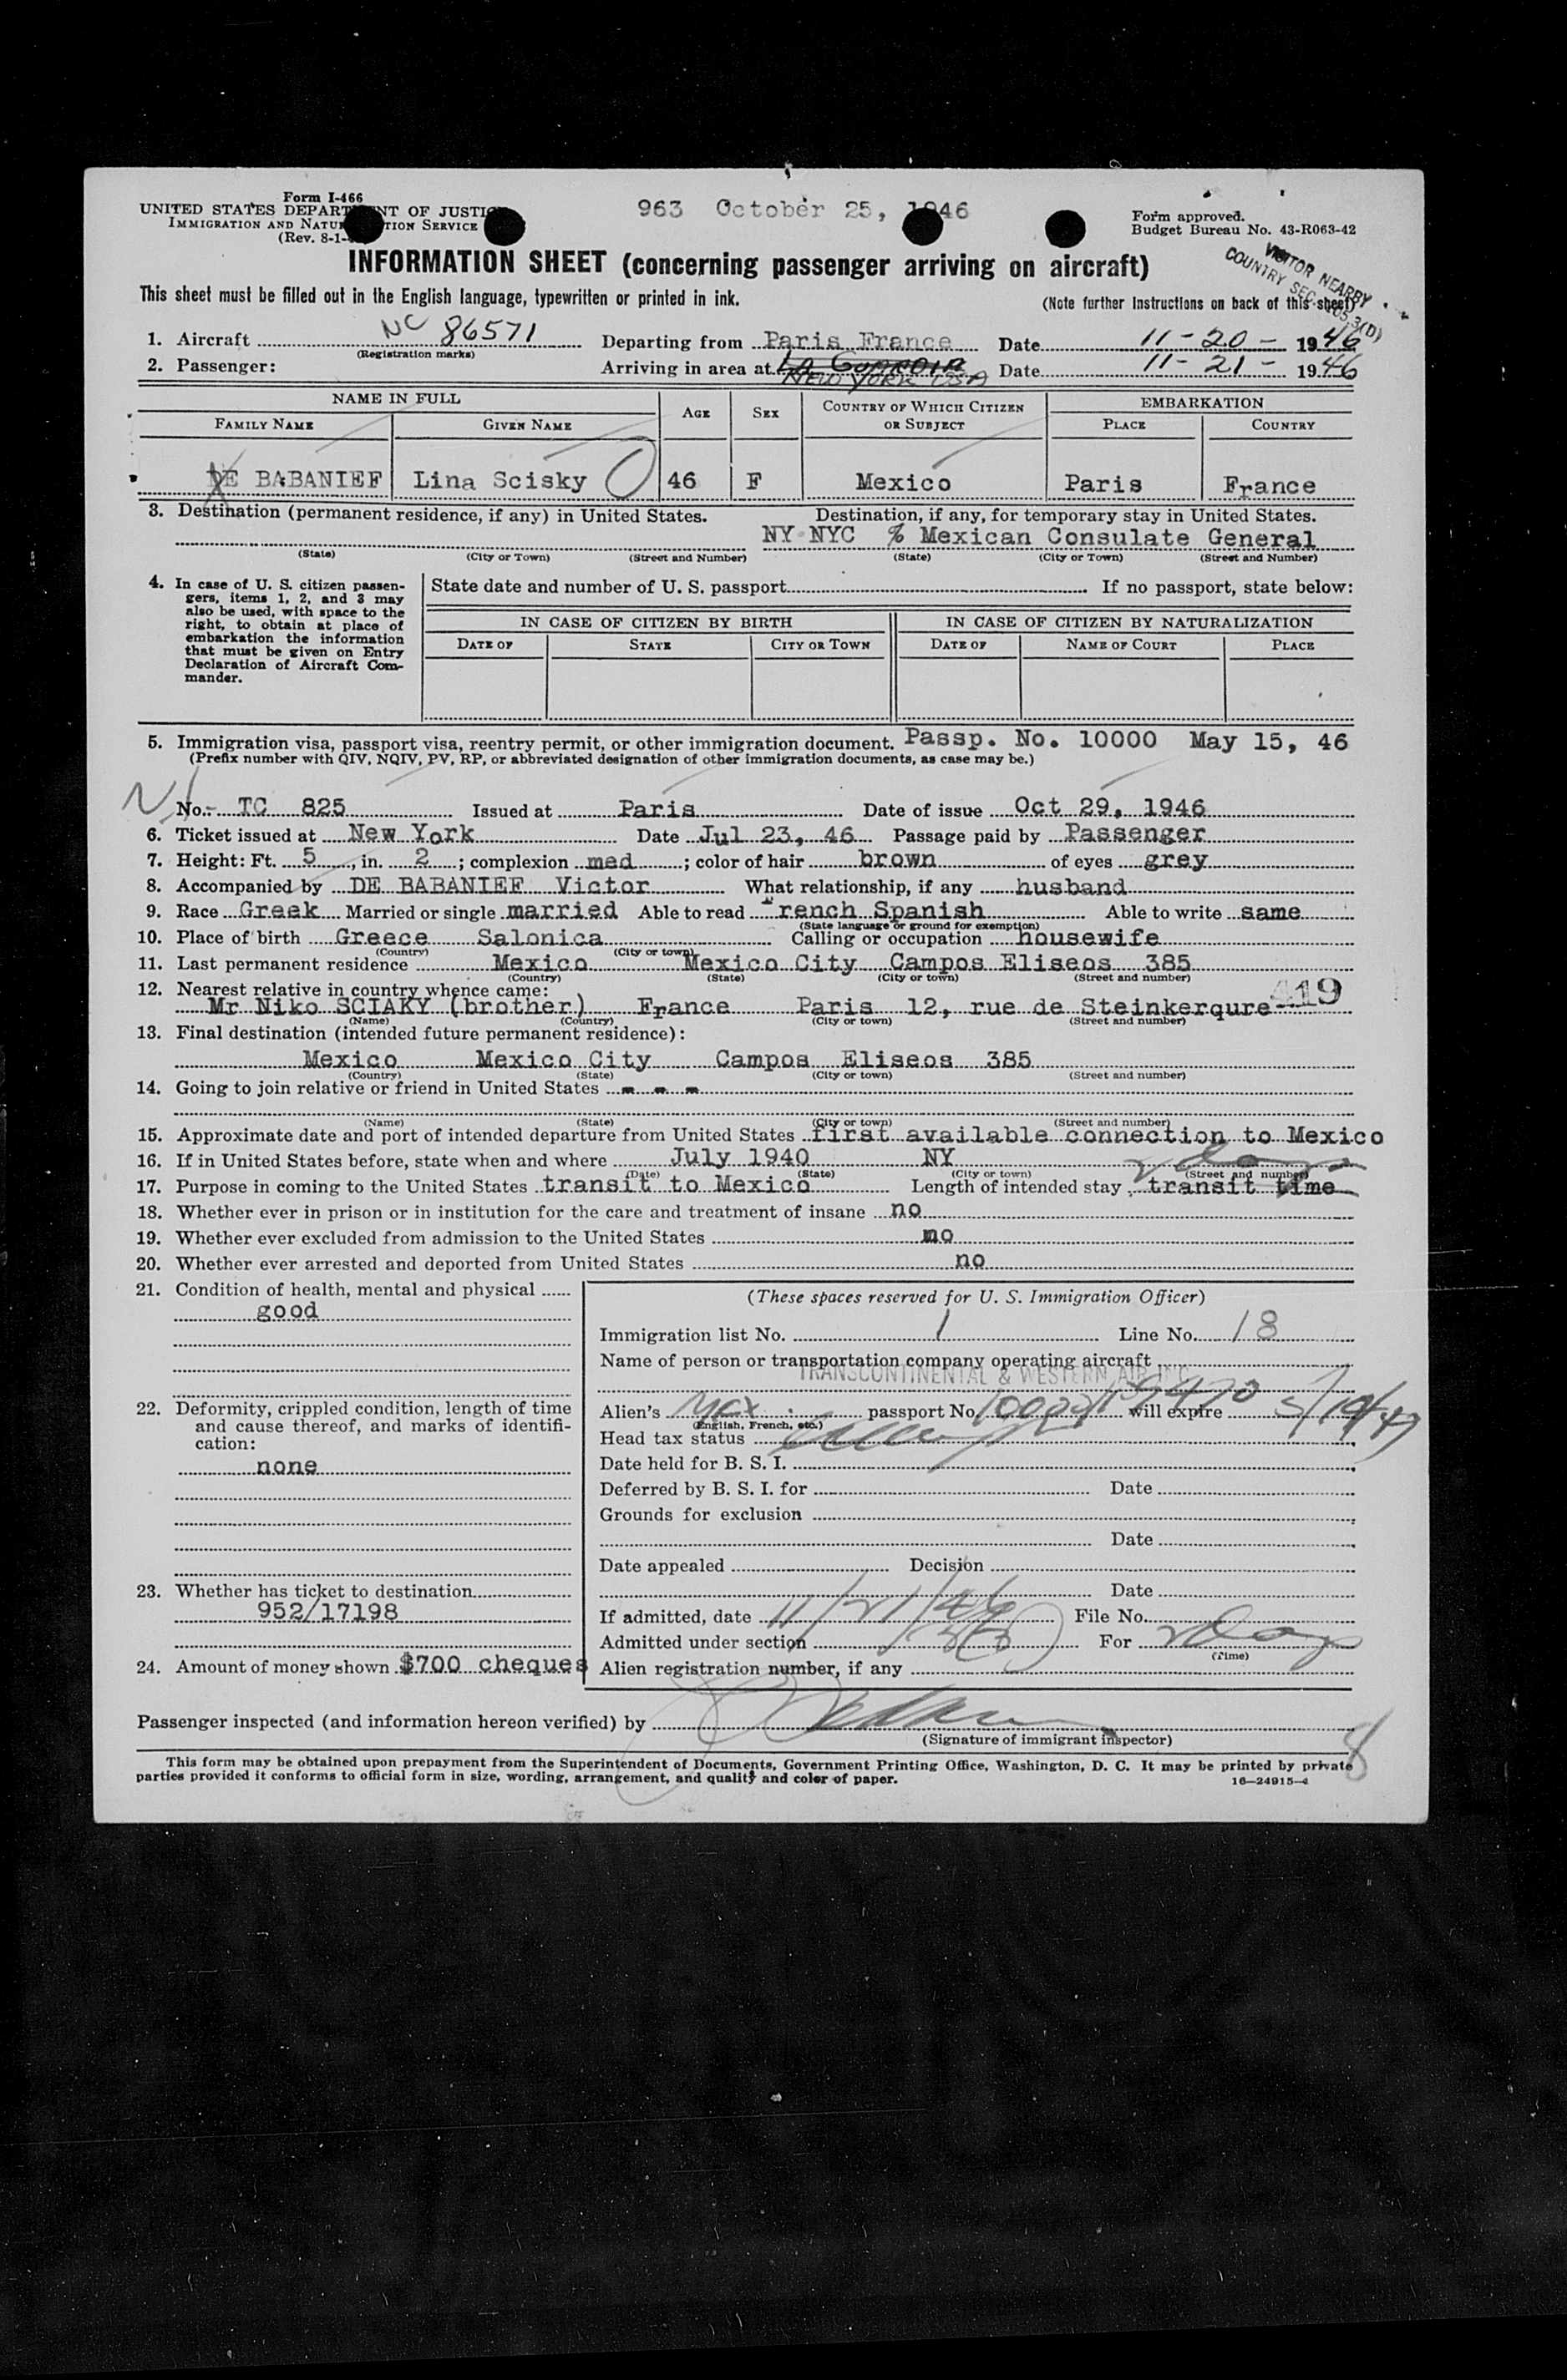 Form I-466
UNITED STATES DEPARTMENT OF JUSTICE
IMMIGRATION AND NATURALIZATION SERVICE
(Rev. 8-1-
963 October 25, 1946
Form approved.
Budget Bureau No. 43-R063-42
INFORMATION SHEET (concerning passenger arriving on aircraft)
VISITOR NEARBY
COUNTRY SEC. 105.3(D)
This sheet must be filled out in the English language, typewritten or printed in ink. (Note further instructions on back of this sheet)
1. Aircraft NC 86571 Departing from Paris France Date 11-20- 1946
(Registration marks)
2. Passenger: Arriving in area at La Guardia Date 11-21- 1946
NEW YORK USA
NAME IN FULL AGE SEX COUNTRY OF WHICH CITIZEN OR SUBJECT EMBARKATION
FAMILY NAME GIVEN NAME PLACE COUNTRY
DE BABANIEF Lina Scisky 46 F Mexico Paris France
3. Destination (permanent residence, if any) in United States. Destination, if any, for temporary stay in United States.
NY NYC % Mexican Consulate General
(State) (City or Town) (Street and Number) (State) (City or Town) (Street and Number)
4. In case of U. S. citizen passen-
gers, items 1, 2, and 3 may
also be used, with space to the
right, to obtain at place of
embarkation the information
that must be given on Entry
Declaration of Aircraft Com-
mander.
State date and number of U. S. passport If no passport, state below:
IN CASE OF CITIZEN BY BIRTH IN CASE OF CITIZEN BY NATURALIZATION
DATE OF STATE CITY OR TOWN DATE OF NAME OF COURT PLACE
5. Immigration visa, passport visa, reentry permit, or other immigration document. Passp. No. 10000 May 15, 46
(Prefix number with QIV, NQIV, PV, RP, or abbreviated designation of other immigration documents, as case may be.)
No. TC 825 Issued at Paris Date of issue Oct 29, 1946
6. Ticket issued at New York Date Jul 23, 46 Passage paid by Passenger
7. Height: Ft. 5, in. 2; complexion med; color of hair brown of eyes grey
8. Accompanied by DE BABANIEF Victor What relationship, if any husband
9. Race Greek Married or single married Able to read French Spanish Able to write same
(State language or ground for exemption)
10. Place of birth Greece Salonica Calling or occupation housewife
(Country) (City or town)
11. Last permanent residence Mexico Mexico City Campos Eliseos 385
(Country) (State) (City or town) (Street and number)
12. Nearest relative in country whence came:
Mr Niko SCIAKY (brother) France Paris 12, rue de Steinkerqure 419
(Name) (Country) (City or town) (Street and number)
13. Final destination (intended future permanent residence):
Mexico Mexico City Campos Eliseos 385
(Country) (State) (City or town) (Street and number)
14. Going to join relative or friend in United States - - -
(Name) (State) (City or town) (Street and number)
15. Approximate date and port of intended departure from United States first available connection to Mexico
16. If in United States before, state when and where July 1940 NY
(Date) (State) (City or town) (Street and number)
17. Purpose in coming to the United States transit to Mexico Length of intended stay transit time
2 days
18. Whether ever in prison or in institution for the care and treatment of insane no
19. Whether ever excluded from admission to the United States no
20. Whether ever arrested and deported from United States no
21. Condition of health, mental and physical
good
22. Deformity, crippled condition, length of time
and cause thereof, and marks of identifi-
cation:
none
23. Whether has ticket to destination
952/17198
24. Amount of money shown $700 cheques
(These spaces reserved for U. S. Immigration Officer)
Immigration list No. 1 Line No. 18
Name of person or transportation company operating aircraft
TRANSCONTINENTAL & WESTERN AIR INC
Alien's Mex passport No. will expire
(English, French, etc.)
Head tax status
Date held for B. S. I.
Deferred by B. S. I. for Date
Grounds for exclusion
Date
Date appealed Decision
Date
If admitted, date 11/21/46 File No.
Admitted under section 3(3) For 2 days
(Time)
Alien registration number, if any
Passenger inspected (and information hereon verified) by
(Signature of immigrant inspector)
8
This form may be obtained upon prepayment from the Superintendent of Documents, Government Printing Office, Washington, D. C. It may be printed by private
parties provided it conforms to official form in size, wording, arrangement, and quality and color of paper. 16—24915-2